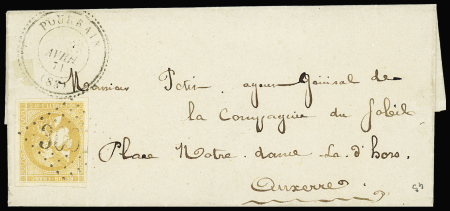 POURRAIN
AVRIL
71
(83)
Monsieur Petit, agent Général de
la Compagnie du Soleil
Place Notre-dame-la-d'hors.
Auxerre